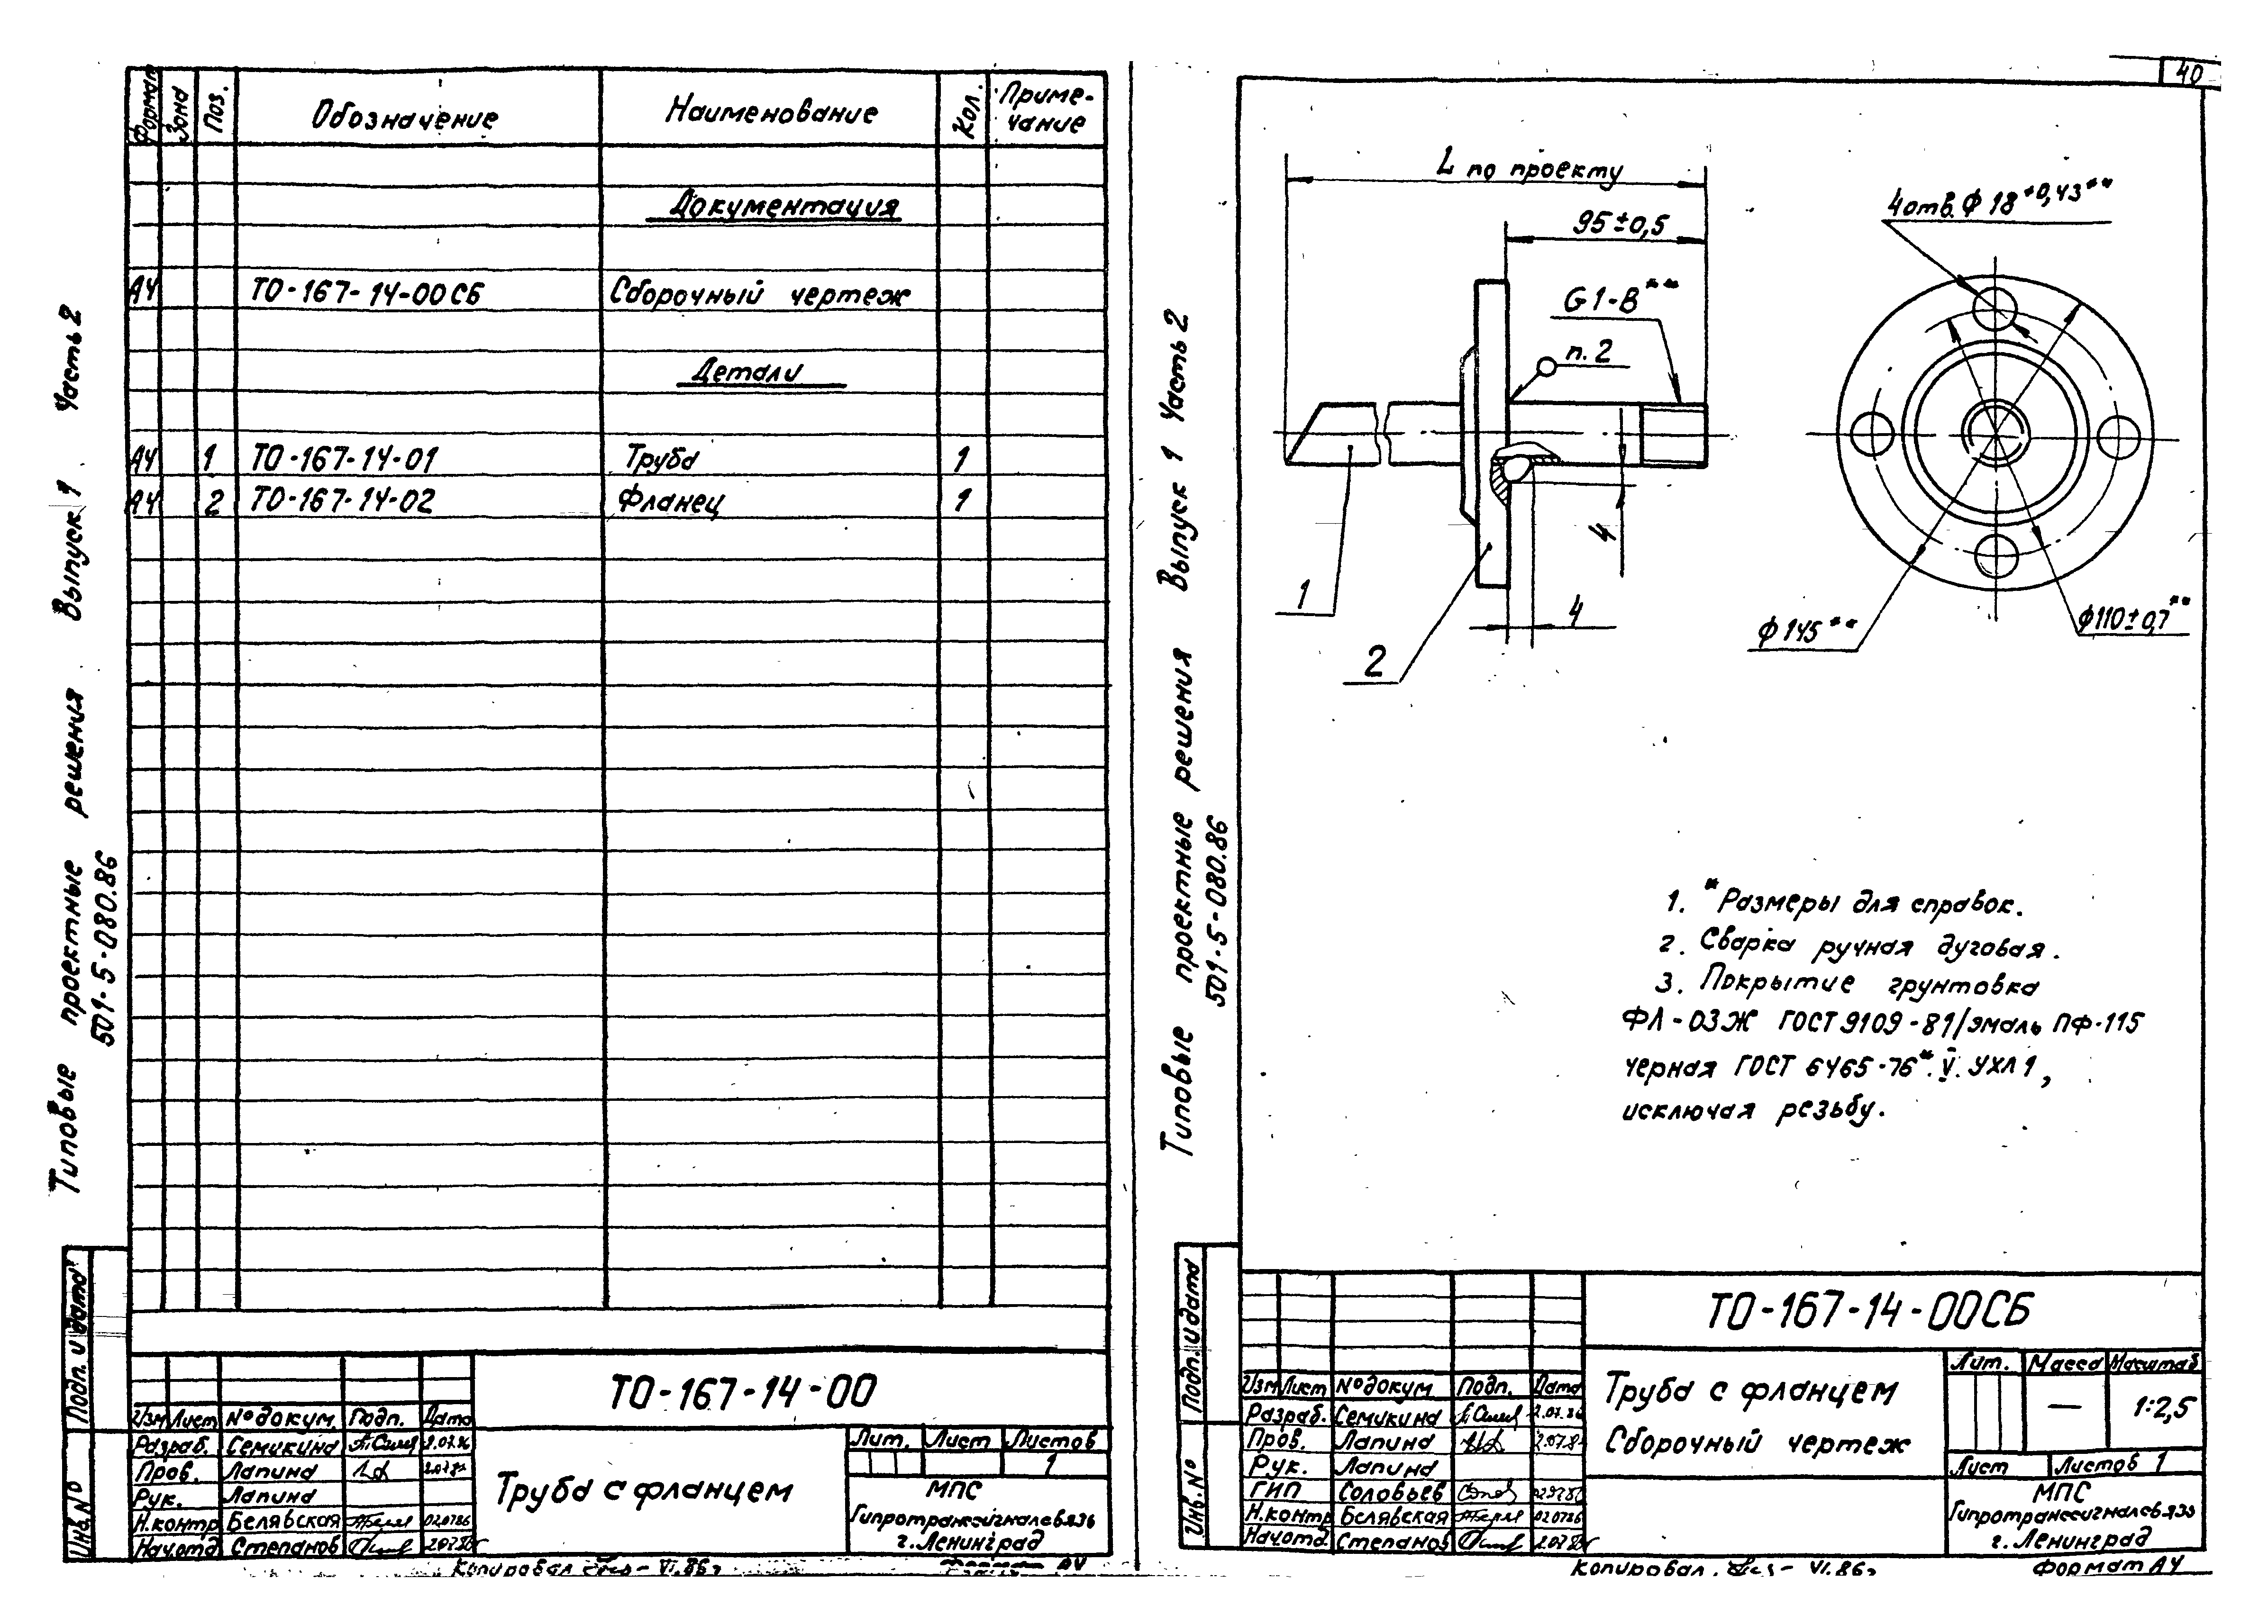 Формат Зона Поз. Обозначение Наименование Кол. Приме-
чание
Документация
А4 ТО-167-14-00СБ Сборочный чертеж
Детали
А4 1 ТО-167-14-01 Труба 1
А4 2 ТО-167-14-02 Фланец 1
Типовые проектные решения Выпуск 1 Часть 2
501-5-080.86
Подп. и дата
Инв. №
ТО-167-14-00
Изм Лист № докум. Подп. Дата
Разраб. Семикина
Пров. Лапина
Рук. Лапина
Н.контр Белявская 020786
Нач.отд. Степанов
Труба с фланцем
Лит. Лист Листов
1
МПС
Гипротранссигналсвязь
г. Ленинград
Копировал VI.86г
Формат А4
40
L по проекту
95±0,5
G1-B**
п. 2
4
4
1
2
4 отв. Ф 18 +0,43**
Ф 145**
Ф110±0,7**
1. *Размеры для справок.
2. Сварка ручная дуговая.
3. Покрытие грунтовка
ФЛ-03Ж ГОСТ 9109-81/эмаль ПФ-115
черная ГОСТ 6465-76*. V. УХЛ1,
исключая резьбу.
Типовые проектные решения Выпуск 1 Часть 2
501-5-080.86
Подп. и дата
Инв. №
ТО-167-14-00СБ
Изм Лист № докум. Подп. Дата
Разраб. Семикина
Пров. Лапина
Рук. Лапина
ГИП Соловьев
Н.контр Белявская 020786
Нач.отд. Степанов
Труба с фланцем
Сборочный чертеж
Лит. Масса Масштаб
— 1:2,5
Лист Листов 1
МПС
Гипротранссигналсвязь
г. Ленинград
Копировал VI.86г
Формат А4